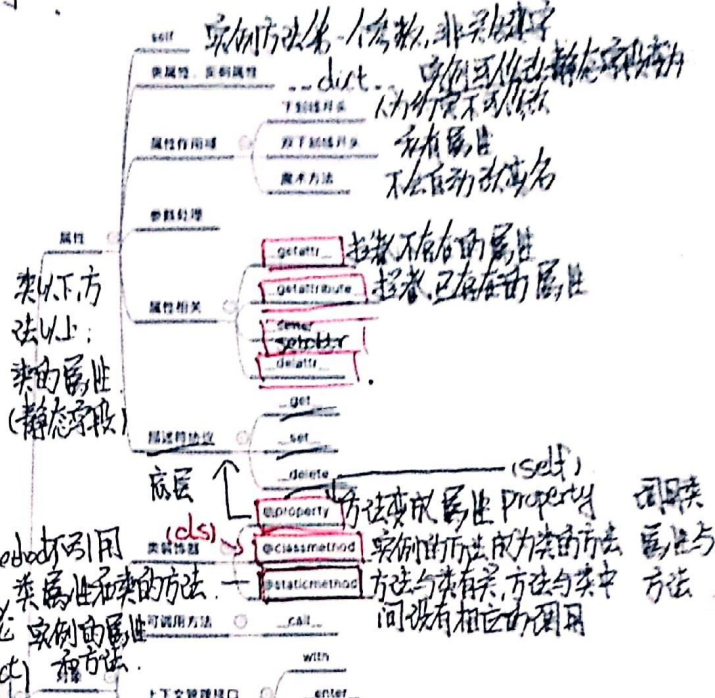 self 实例方法第一个参数,非关键字
类属性、实例属性 __dict__ 实例可以修改静态字段
属性作用域
下划线开头 人为约定不可修改
双下划线开头 私有属性
魔术方法 不会自动改高名
参数处理
属性
类以下,方
法以上:
类的属性
(静态字段)
属性相关
__getattr__ 拦截,不存在的属性
__getattribute__ 拦截,已存在的属性
setattr
__delattr__
描述符协议
__get__
__set__
__delete__
底层
(self)
@property 方法变成属性 property 调用类
(cls)
类装饰器
@classmethod 实例的方法成为类的方法 属性与
@staticmethod 方法与类有关,方法与类中 方法
间没有相应的调用
ethod可引用
类属性和类的方法.
实例的属性
和方法.
可调用方法 __call__
with
上下文管理接口 __enter__